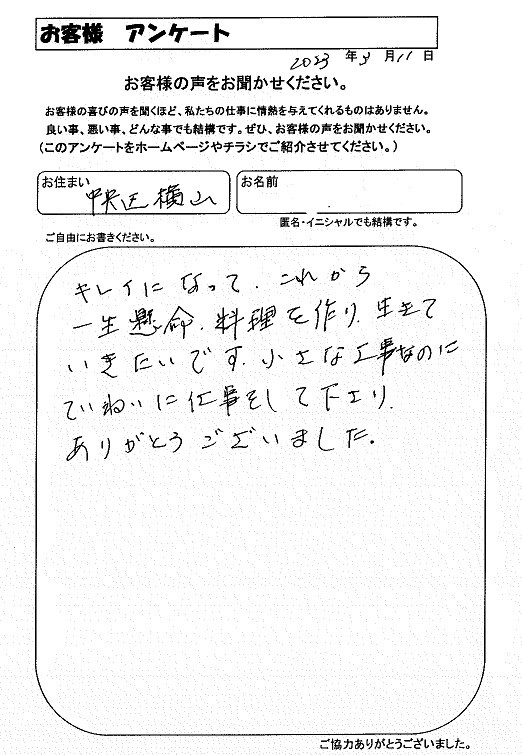 お客様　アンケート
2023年3月11日
お客様の声をお聞かせください。
お客様の喜びの声を聞くほど、私たちの仕事に情熱を与えてくれるものはありません。
良い事、悪い事、どんな事でも結構です。ぜひ、お客様の声をお聞かせください。
（このアンケートをホームページやチラシでご紹介させてください。）
お住まい　中央区横山
お名前
匿名・イニシャルでも結構です。
ご自由にお書きください。
キレイになって、これから
一生懸命、料理を作り、生きて
いきたいです。小さな工事なのに
ていねいに仕事をして下さり、
ありがとうございました。
ご協力ありがとうございました。